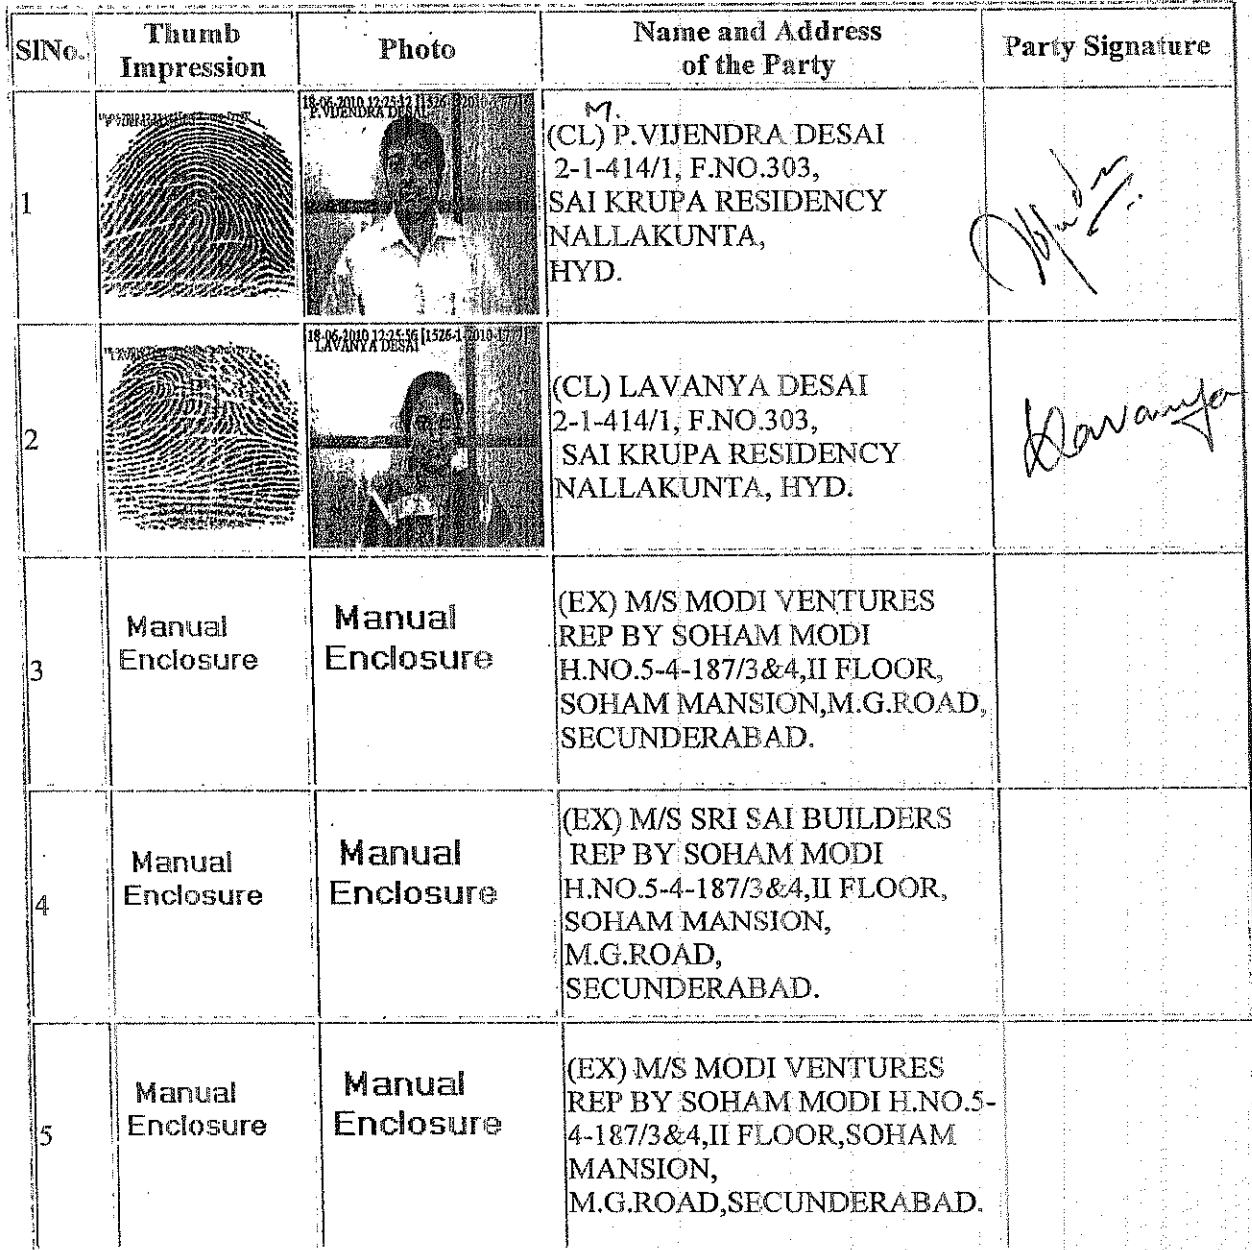 SlNo.
Thumb
Impression
Photo
Name and Address
of the Party
Party Signature
1
18-06-2010 12:25:12 [1526-
P.VIJENDRA DESAI
M.
(CL) P.VIJENDRA DESAI
2-1-414/1, F.NO.303,
SAI KRUPA RESIDENCY
NALLAKUNTA,
HYD.
2
18-06-2010 12:25:56 [1526-1-2010-1777]
LAVANYA DESAI
(CL) LAVANYA DESAI
2-1-414/1, F.NO.303,
SAI KRUPA RESIDENCY
NALLAKUNTA, HYD.
Lavanya
3
Manual
Enclosure
Manual
Enclosure
(EX) M/S MODI VENTURES
REP BY SOHAM MODI
H.NO.5-4-187/3&4,II FLOOR,
SOHAM MANSION,M.G.ROAD,
SECUNDERABAD.
4
Manual
Enclosure
Manual
Enclosure
(EX) M/S SRI SAI BUILDERS
REP BY SOHAM MODI
H.NO.5-4-187/3&4,II FLOOR,
SOHAM MANSION,
M.G.ROAD,
SECUNDERABAD.
5
Manual
Enclosure
Manual
Enclosure
(EX) M/S MODI VENTURES
REP BY SOHAM MODI H.NO.5-
4-187/3&4,II FLOOR,SOHAM
MANSION,
M.G.ROAD,SECUNDERABAD.